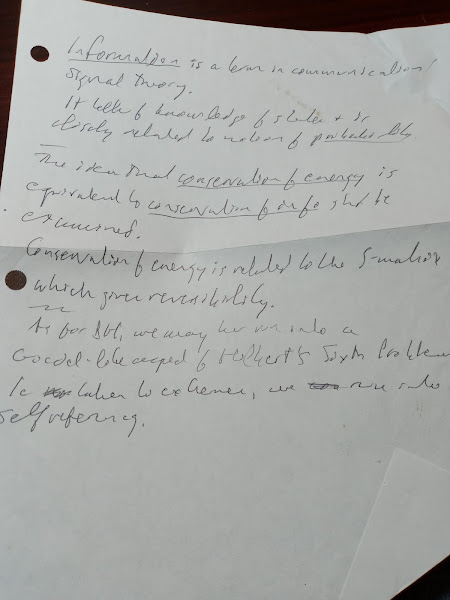 Information is a term in communication/
signal theory.
It talks of knowledge of states & is
closely related to notion of probability
The idea that conservation of energy is
equivalent to conservation of info shd be
examined.
Conservation of energy is related to the S-matrix
which gives reversibility.
As for BH, we may run into a
Goedel-like aspect of Hilbert's Sixth Problem
Ie taken to extremes, we run into
self reference.